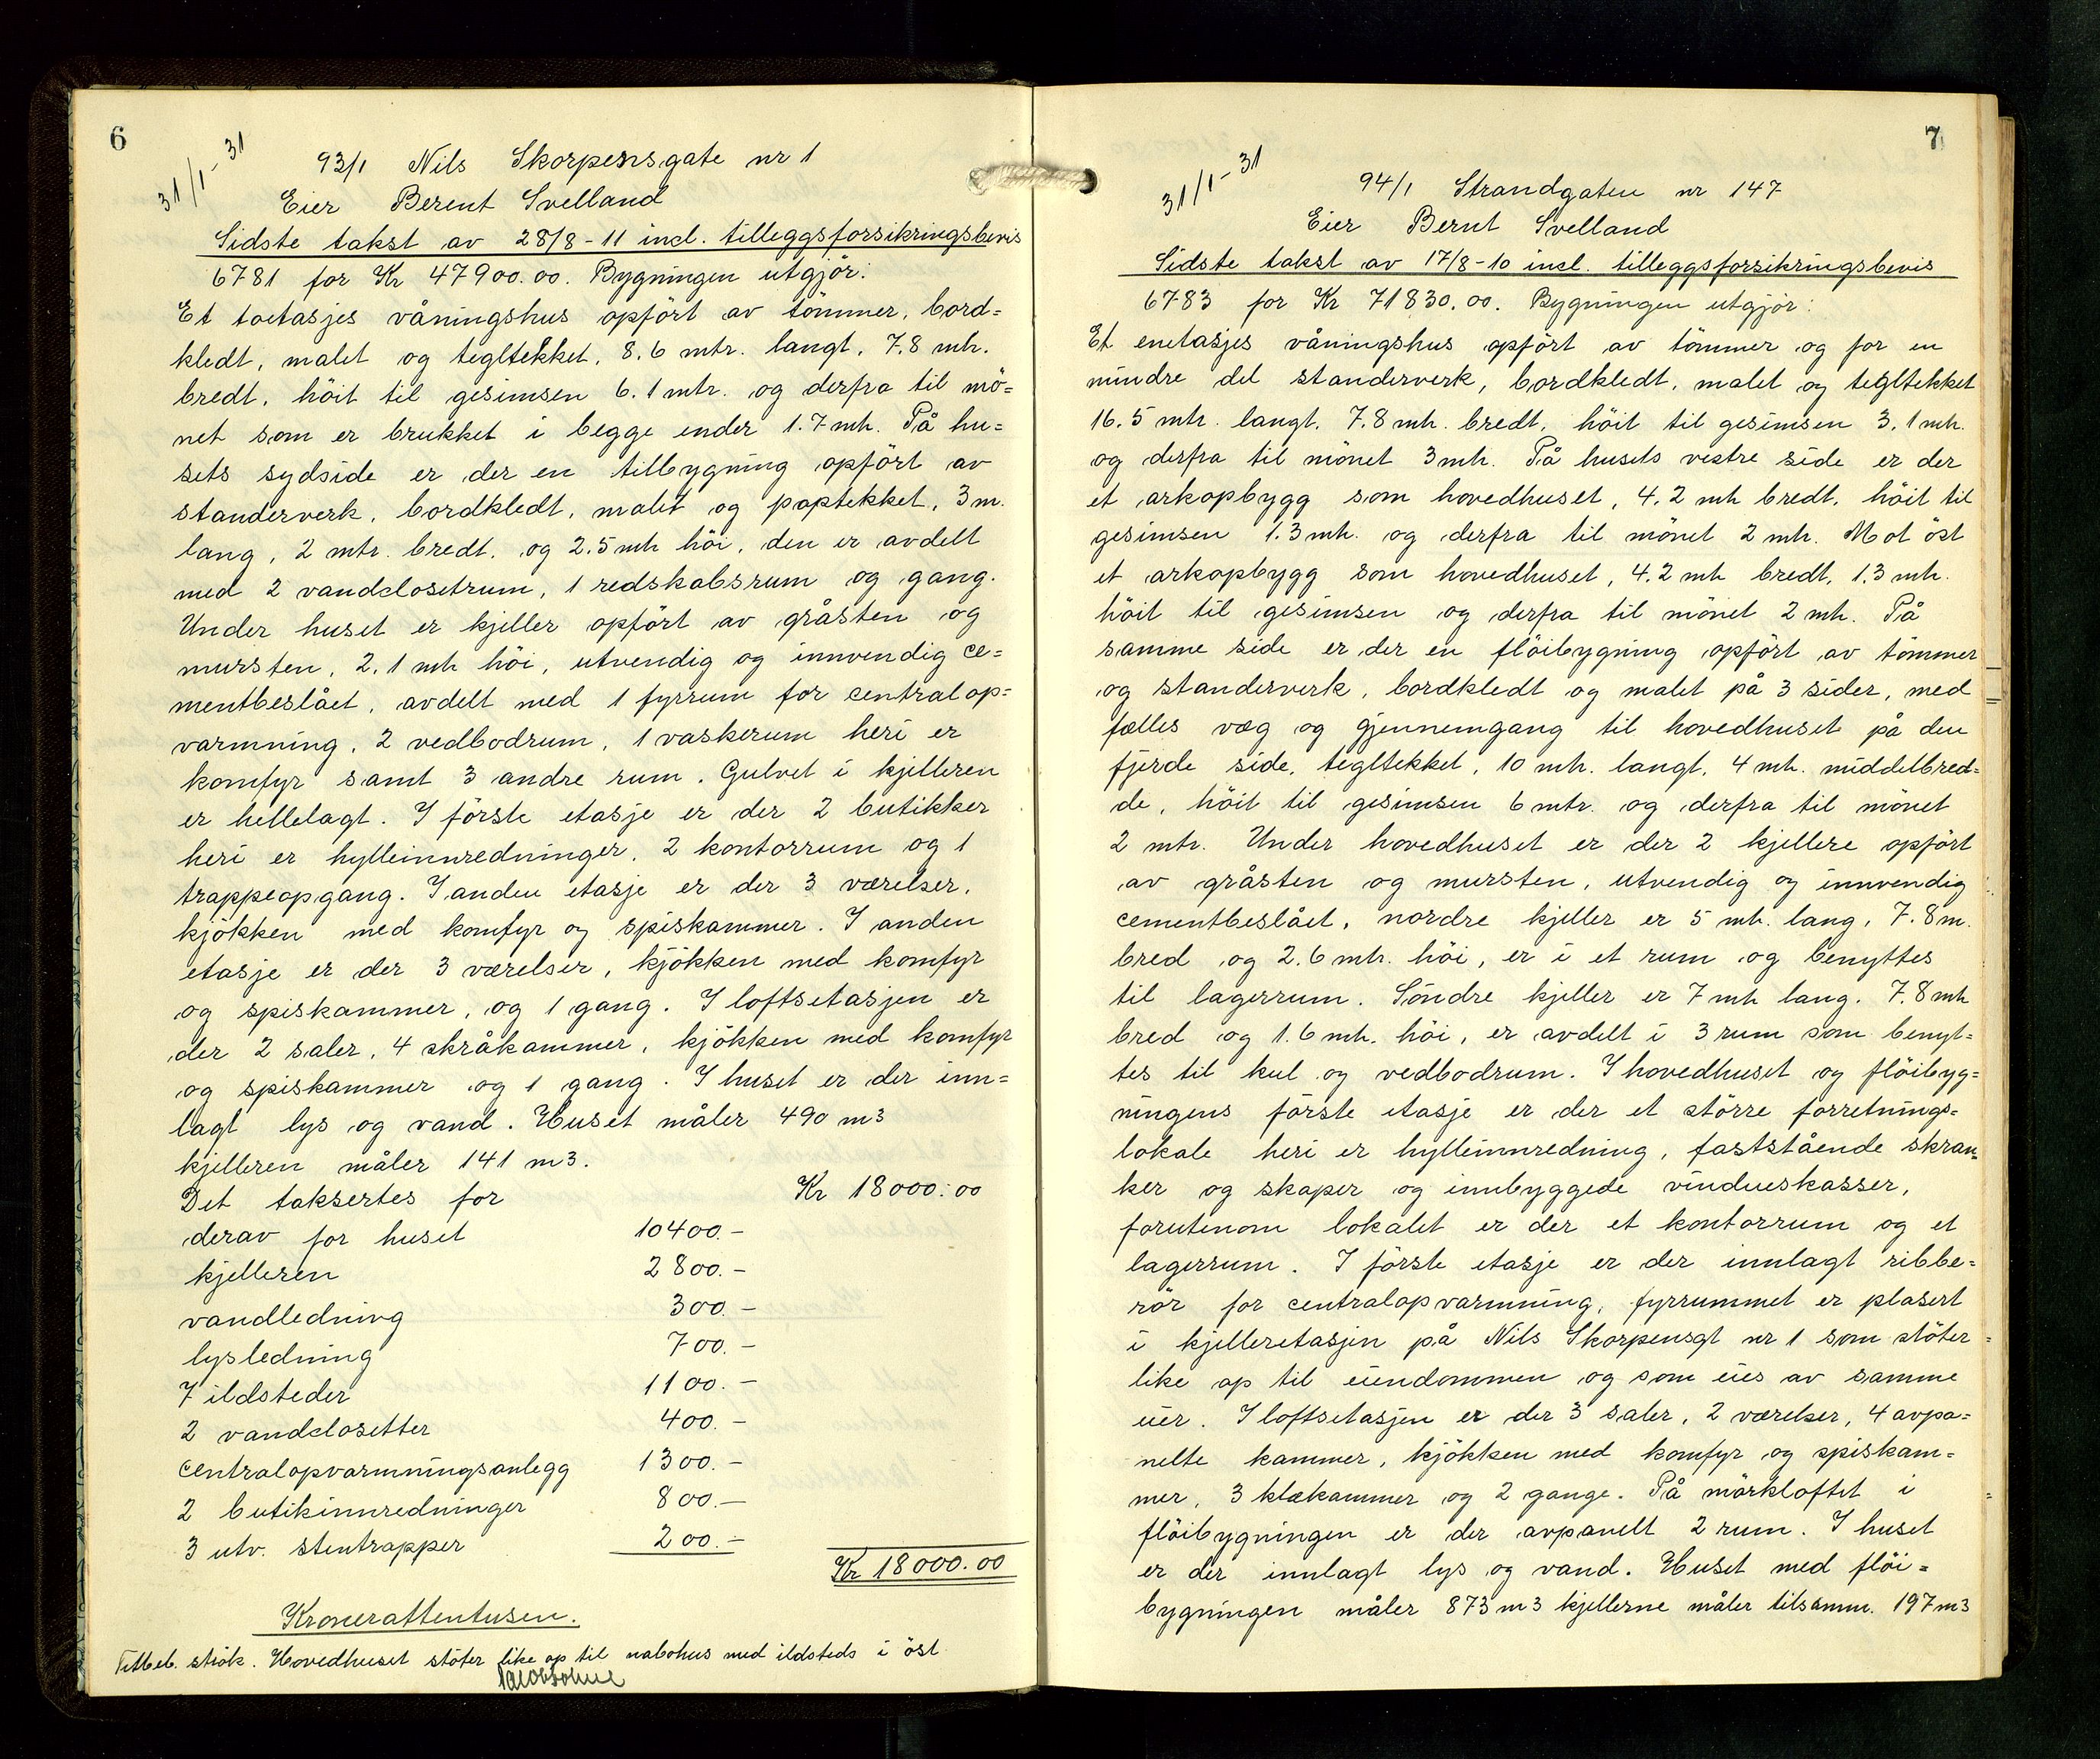 6
31/1-31
93/1 Nils Skorpensgate nr 1
Eier Berent Svelland
Sidste takst av 28/8-11 incl. tilleggsforsikringsbevis
6781 for Kr 47900.00. Bygningen utgjör:
Et toetasjes våningshus opfört av tömmer, bord=
kledt, malet og tegltekket, 8.6 mtr. langt, 7.8 mtr.
bredt, höit til gesimsen 6.1 mtr. og derfra til mö=
net som er brukket i begge ender 1.7 mtr. På hu=
sets sydside er der en tilbygning opfört av
standerverk, bordkledt, malet og paptekket, 3 m.
lang, 2 mtr. bredt, og 2.5 mtr höi, den er avdelt
med 2 vandclosetrum, 1 redskabsrum og gang.
Under huset er kjeller opfört av gråsten og
mursten, 2.1 mtr höi, utvendig og innvendig ce=
mentbeslået, avdelt med 1 fyrrum for centralop=
varmning, 2 vedbodrum, 1 vaskerum heri er
komfyr samt 3 andre rum. Gulvet i kjelleren
er hellelagt. I förste etasje er der 2 butikker
heri er hylleinnredninger, 2 kontorrum og 1
trappeopgang. I anden etasje er der 3 værelser,
kjökken med komfyr og spiskammer. I anden
etasje er der 3 værelser, kjökken med komfyr
og spiskammer, og 1 gang. I loftsetasjen er
der 2 saler, 4 skråkammer, kjökken med komfyr
og spiskammer og 1 gang. I huset er der inn=
lagt lys og vand. Huset måler 490 m3
kjelleren måler 141 m3.
Det taksertes for Kr 18000.00
derav for huset 10400.-
kjelleren 2800.-
vandledning 300.-
lysledning 700.-
7 ildsteder 1100.-
2 vandclosetter 400.-
centralopvarmningsanlegg 1300.-
2 butikinnredninger 800.-
3 utv. stentrapper 200.-
Kr 18000.00
Kronerattentusen.
Hovedhuset stöter like op til nabohus med ildsteds i öst
7
31/1-31
94/1 Strandgaten nr 147
Eier Bernt Svelland
Sidste takst av 17/8-10 incl. tilleggsforsikringsbevis
6783 for Kr 71830.00. Bygningen utgjör:
Et enetasjes våningshus opfört av tömmer og for en
mindre del standerverk, bordkledt, malet og tegltekket
16.5 mtr. langt, 7.8 mtr. bredt, höit til gesimsen 3.1 mtr.
og derfra til mönet 3 mtr. På husets vestre side er der
et arkopbygg som hovedhuset, 4.2 mtr bredt, höit til
gesimsen 1.3 mtr. og derfra til mönet 2 mtr. Mot öst
et arkopbygg som hovedhuset, 4.2 mtr bredt, 1.3 mtr.
höit til gesimsen og derfra til mönet 2 mtr. På
samme side er der en flöibygning opfört av tömmer
og standerverk, bordkledt og malet på 3 sider, med
fælles væg og gjennemgang til hovedhuset på den
fjerde side, tegltekket, 10 mtr. langt, 4 mtr. middelbred=
de, höit til gesimsen 6 mtr. og derfra til mönet
2 mtr. Under hovedhuset er der 2 kjellere opfört
av gråsten og mursten, utvendig og innvendig
cementbeslået, nordre kjeller er 5 mtr. lang, 7.8 m.
bred og 2.6 mtr. höi, er i et rum og benyttes
til lagerrum. Söndre kjeller er 7 mtr lang, 7.8 mtr
bred og 1.6 mtr. höi, er avdelt i 3 rum som benyt=
tes til kul og vedbodrum. I hovedhuset og flöibyg=
ningens förste etasje er der et större forretnings=
lokale heri er hylleinnredning, faststående skran=
ker og skaper og innbyggede vindueskasser,
forutenom lokalet er der et kontorrum og et
lagerrum. I förste etasje er der innlagt ribbe=
rör for centralopvarmning, fyrrummet er plasert
i kjelleretasjen på Nils Skorpensgt nr 1 som stöter
like op til eiendommen og som eies av samme
eier. I loftsetasjen er der 3 saler, 2 værelser, 4 avpa=
nelte kammer, kjökken med komfyr og spiskam=
mer, 3 klækammer og 2 gange. På mörkloftet i
flöibygningen er der avpanelt 2 rum. I huset
er der innlagt lys og vand. Huset med flöi=
bygningen måler 873 m3 kjellerne måler tilsamm. 197 m3